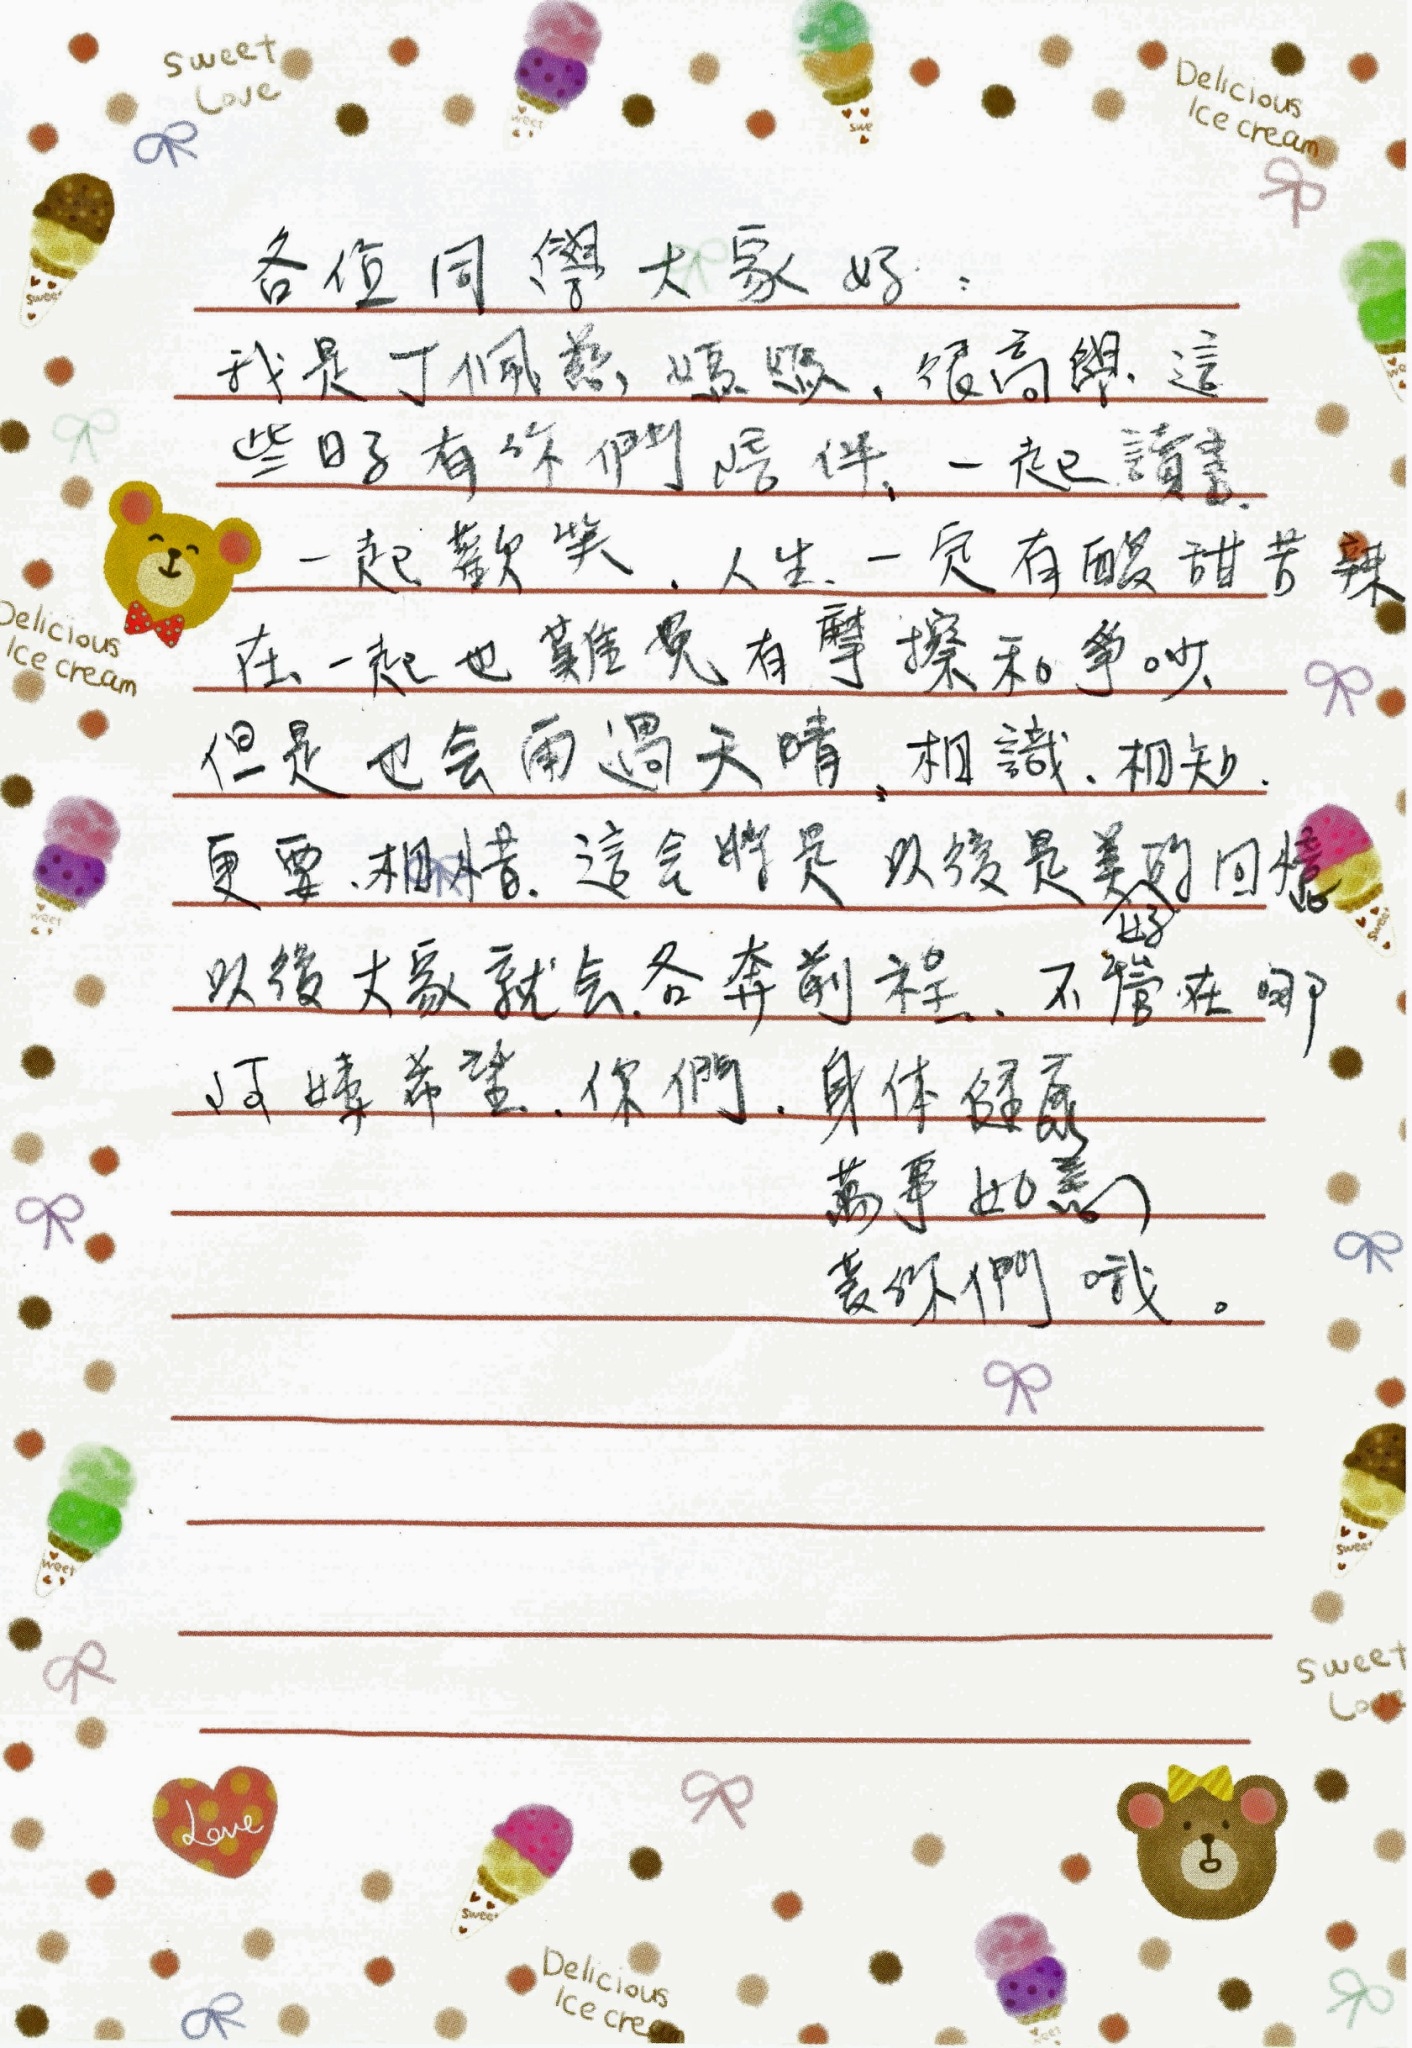 Sweet
Love
Delicious
Ice cream
各位同學大家好:
我是丁佩慈媽媽、很高興、這
些日子有你們陪伴、一起讀書、
一起歡笑、人生、一定有酸甜苦辣
在一起也難免有摩擦和爭吵、
但是也会雨過天晴、相識、相知、
更要、相惜、這会將是 以後是美好的回憶
以後大家就会各奔前程、不管在哪
阿嬤希望、你們、身体健康
萬事如意
爱你們哦。
Delicious
Ice cream
Love
Sweet
Love
Delicious
Ice cream